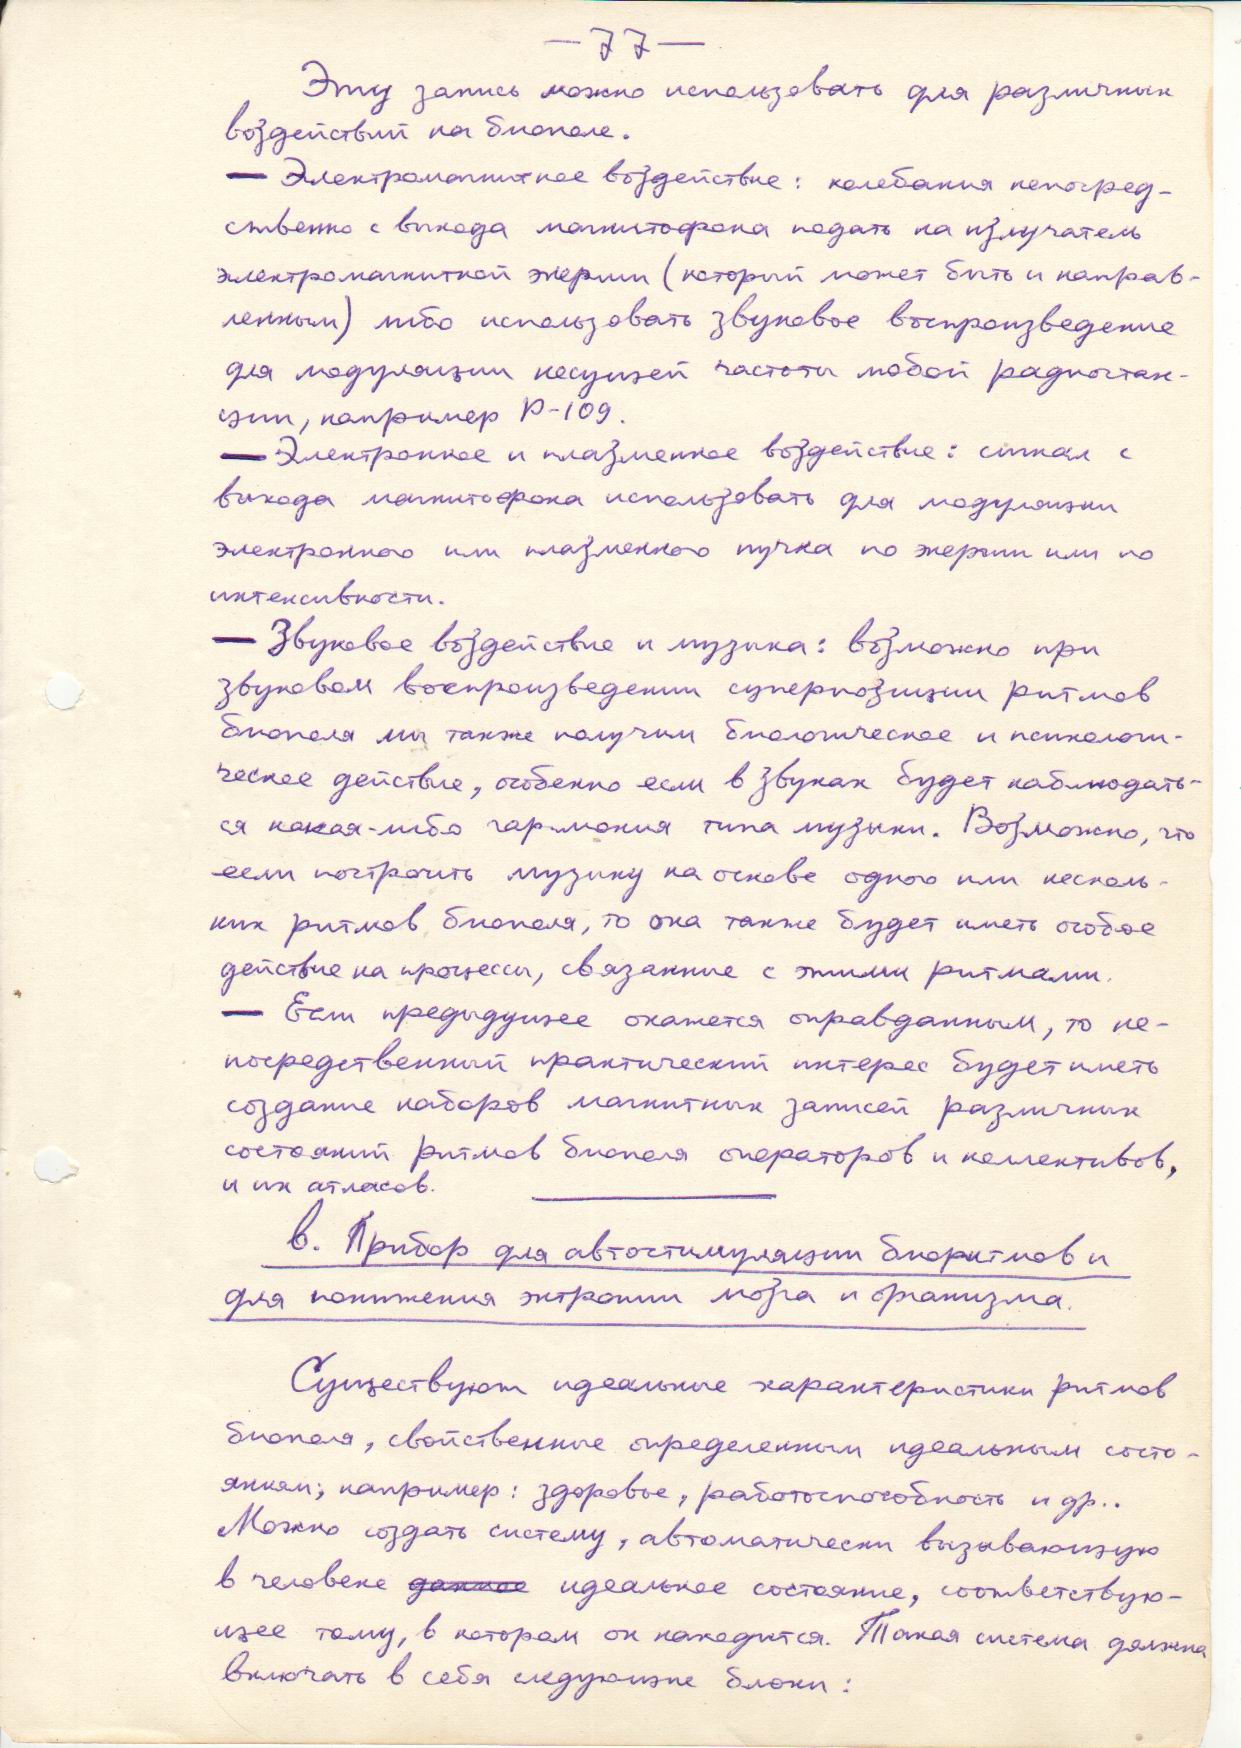 — 77 —
Эту запись можно использовать для различных
воздействий на биополе.
— Электромагнитное воздействие: колебания непосред-
ственно с выхода магнитофона подать на излучатель
электромагнитной энергии (который может быть и направ-
ленным) либо использовать звуковое воспроизведение
для модуляции несущей частоты любой радиостан-
ции, например Р-109.
— Электронное и плазменное воздействие: сигнал с
выхода магнитофона использовать для модуляции
электронного или плазменного пучка по энергии или по
интенсивности.
— Звуковое воздействие и музыка: возможно при
звуковом воспроизведении суперпозиции ритмов
биополя мы также получим биологическое и психологи-
ческое действие, особенно если в звуках будет наблюдать-
ся какая-либо гармония типа музыки. Возможно, что
если построить музыку на основе одного или несколь-
ких ритмов биополя, то она также будет иметь особое
действие на процессы, связанные с этими ритмами.
— Если предыдущее окажется оправданным, то не-
посредственный практический интерес будет иметь
создание наборов магнитных записей различных
состояний ритмов биополя операторов и коллективов,
и их атласов.
в. Прибор для автостимуляции биоритмов и
для понижения энтропии мозга и организма.
Существуют идеальные характеристики ритмов
биополя, свойственные определенным идеальным состо-
яниям; например: здоровье, работоспособность и др..
Можно создать систему, автоматически вызывающую
в человеке данное идеальное состояние, соответствую-
щее тому, в котором он находится. Такая система должна
включать в себя следующие блоки: